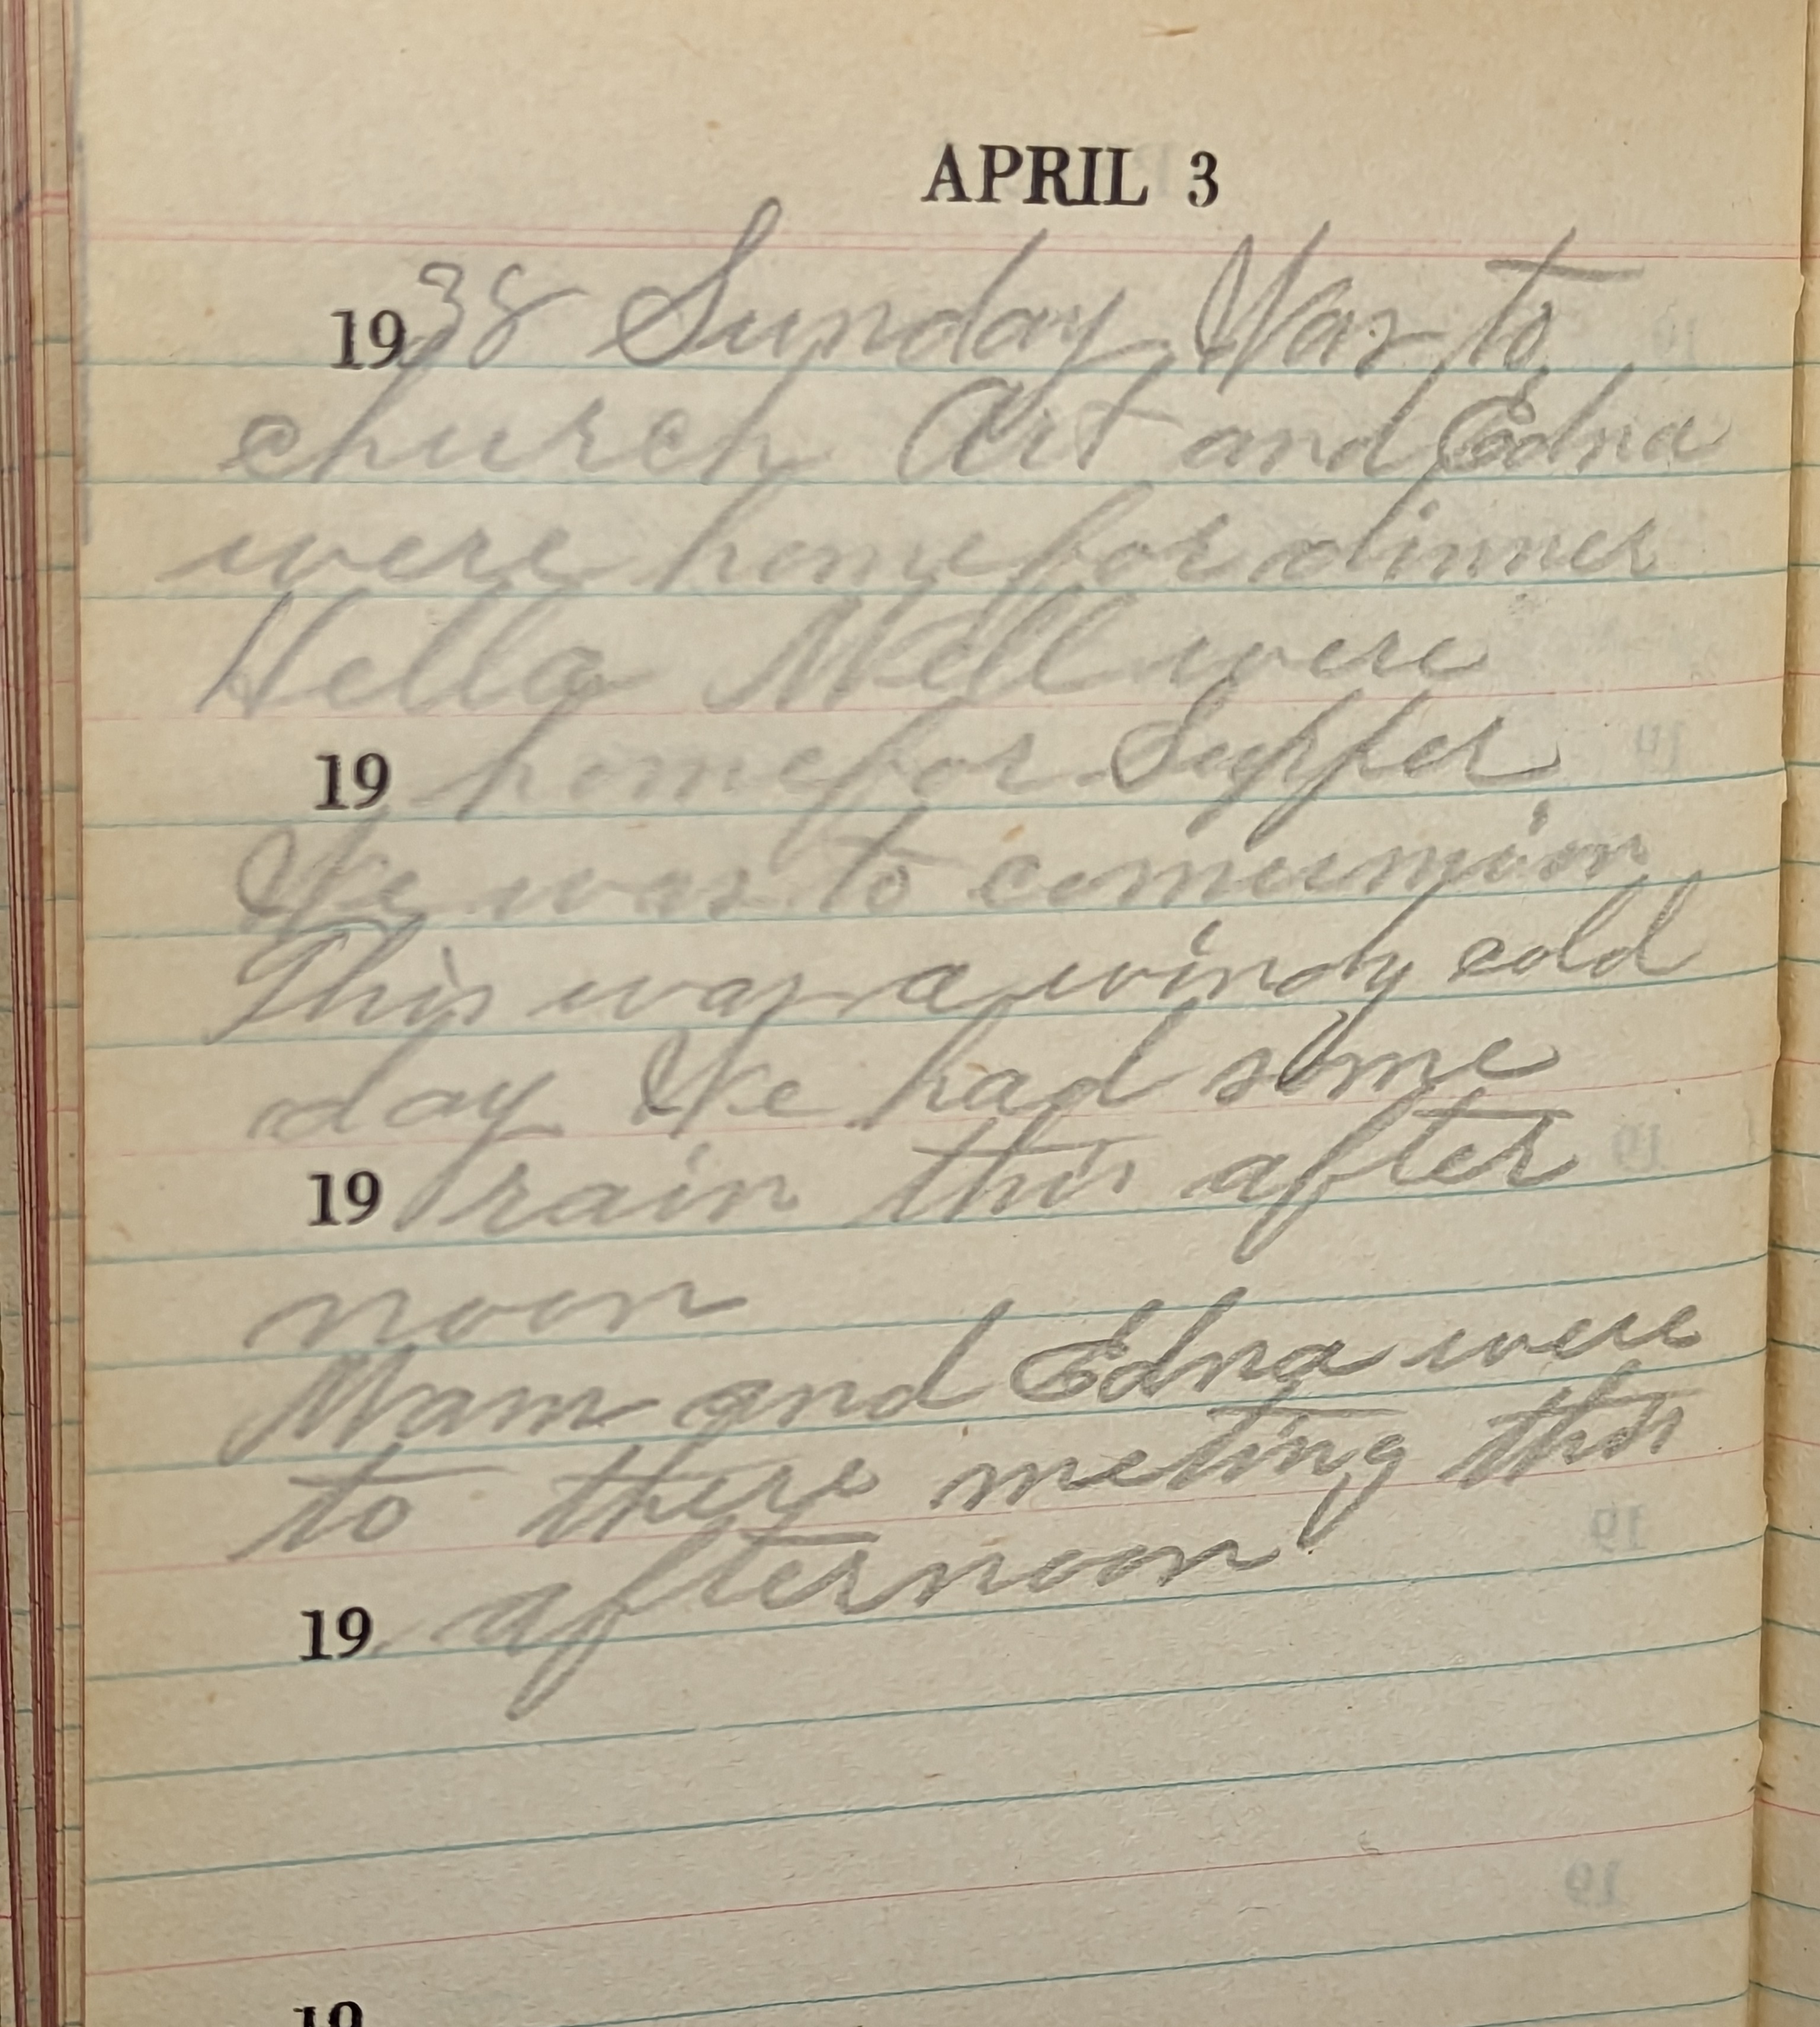 APRIL 3
1938 Sunday Was to
church Art and Edna
were home for dinner
Hella Mell were
19 home for Supper
We was to comunion
This was a windy cold
day We had some
19 rain this after
noon
Mam and Edna were
to there meting this
19 afternoon
19